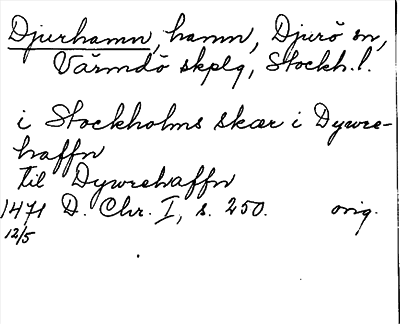 Djurhamn, hamn, Djurö sn,
Värmdö skplg, Stockh. l.
i Stockholms skær i Dywre-
haffn
til Dywrehaffn
1471 D. Chr. I, s. 250. orig.
12/5